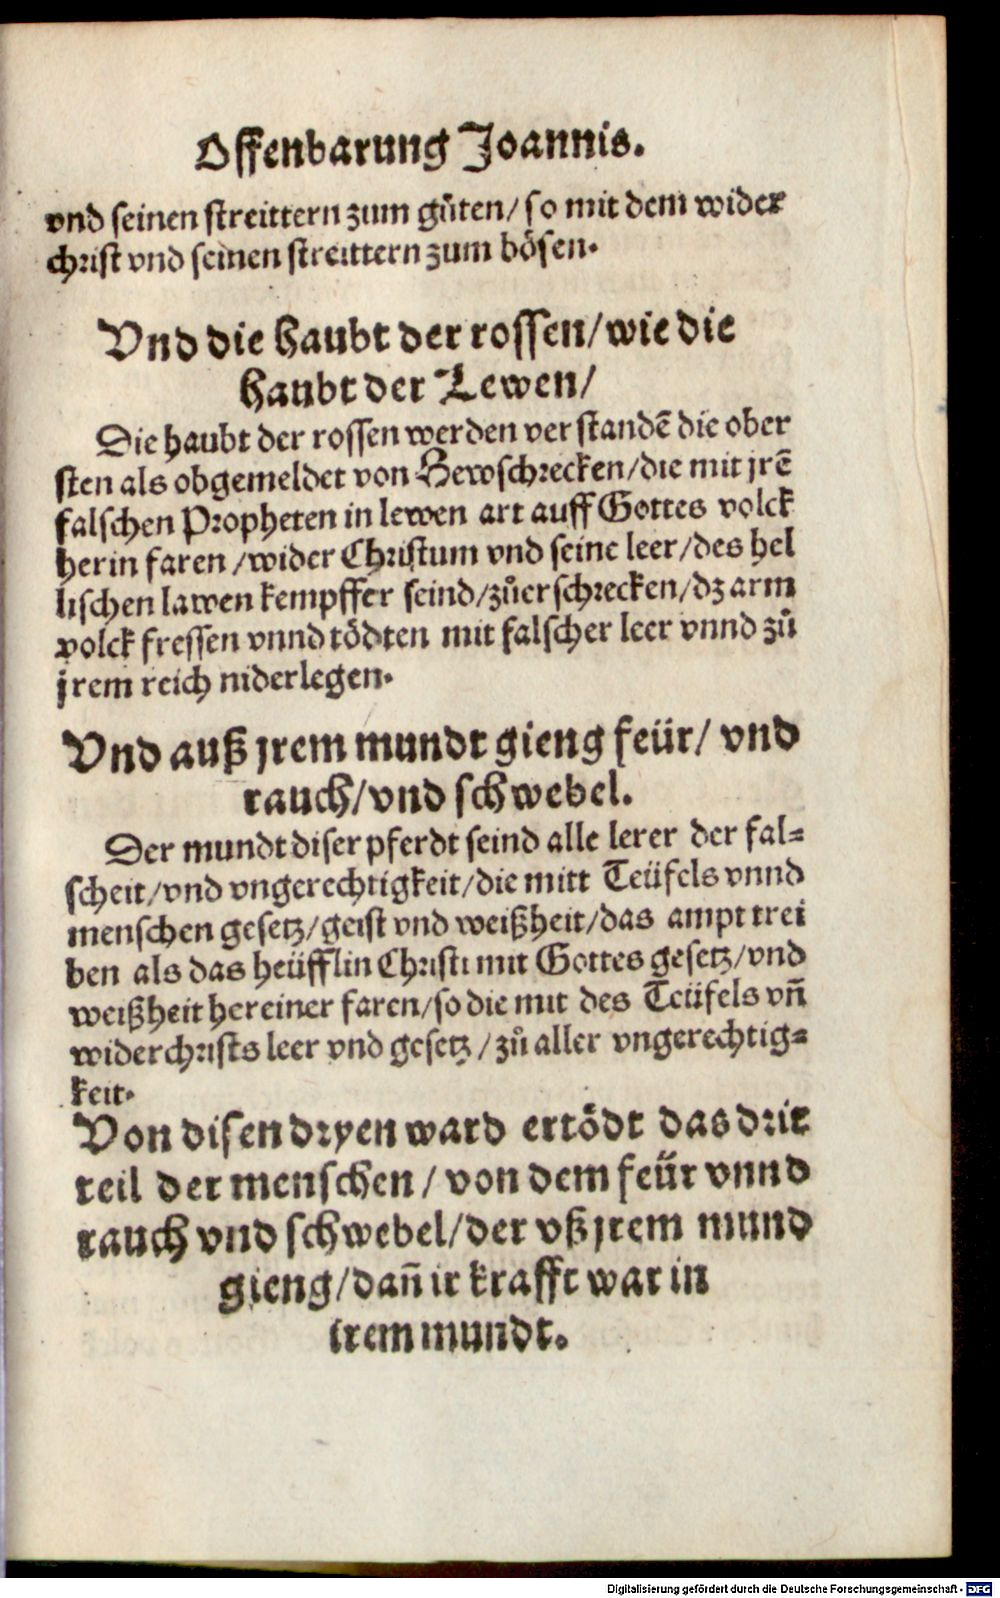 Offenbarung Joannis.
vnd seinen streittern zum gůten/ so mit dem wider
christ vnd seinen streittern zum bösen.
Vnd die haubt der rossen/wie die
haubt der Lewen/
Die haubt der rossen werden verstandē die ober
sten als obgemeldet von Hewschrecken/die mit jrē
falschen Propheten in lewen art auff Gottes volck
herin faren /wider Christum vnd seine leer/des hel
lischen lawen kempffer seind/zůerschrecken/dz arm
volck fressen vnnd tödten mit falscher leer vnnd zů
jrem reich niderlegen.
Vnd auß jrem mundt gieng feür/ vnd
rauch/vnd schwebel.
Der mundt diser pferdt seind alle lerer der fal⸗
scheit/vnd vngerechtigkeit/die mitt Teüfels vnnd
menschen gesetz/geist vnd weißheit/das ampt trei
ben als das heüfflin Christi mit Gottes gesetz/vnd
weißheit hereiner faren/so die mit des Teüfels vn̄
widerchrists leer vnd gesetz /zů aller vngerechtig⸗
keit.
Von disen dryen ward ertödt das drit
teil der menschen/ von dem feür vnnd
rauch vnd schwebel/der vß jrem mund
gieng/dan̄ ir krafft war in
irem mundt.
Digitalisierung gefördert durch die Deutsche Forschungsgemeinschaft - DFG